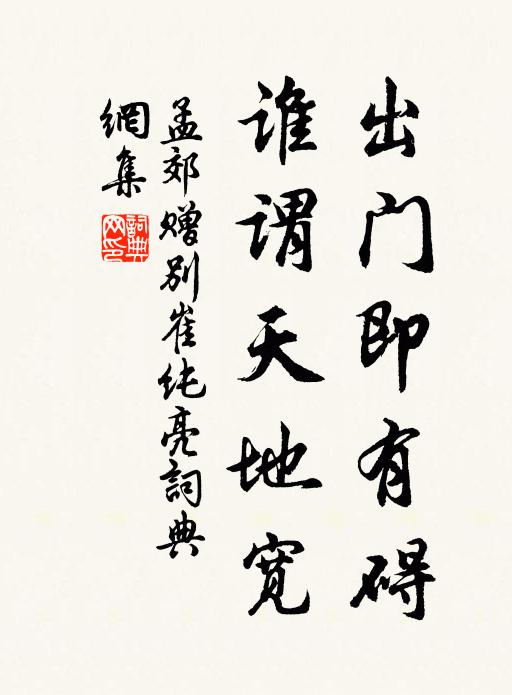 出门即有碍
谁谓天地宽
孟郊赠别崔纯亮詞典
網集
詞典
网印